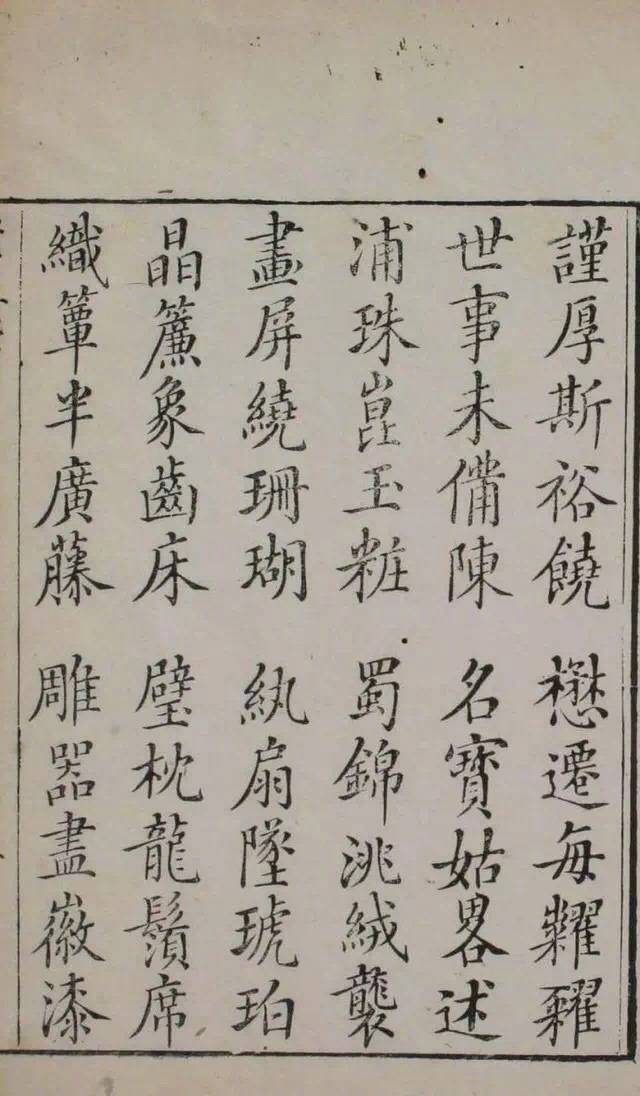 謹厚斯裕饒 懋遷每糶糴
世事未備陳 名寶姑畧述
浦珠崑玉粧 蜀錦洮絨襲
畫屏繞珊瑚 紈扇墜琥珀
晶簾象齒床 璧枕龍鬚席
織簟半廣藤 雕器盡徽漆